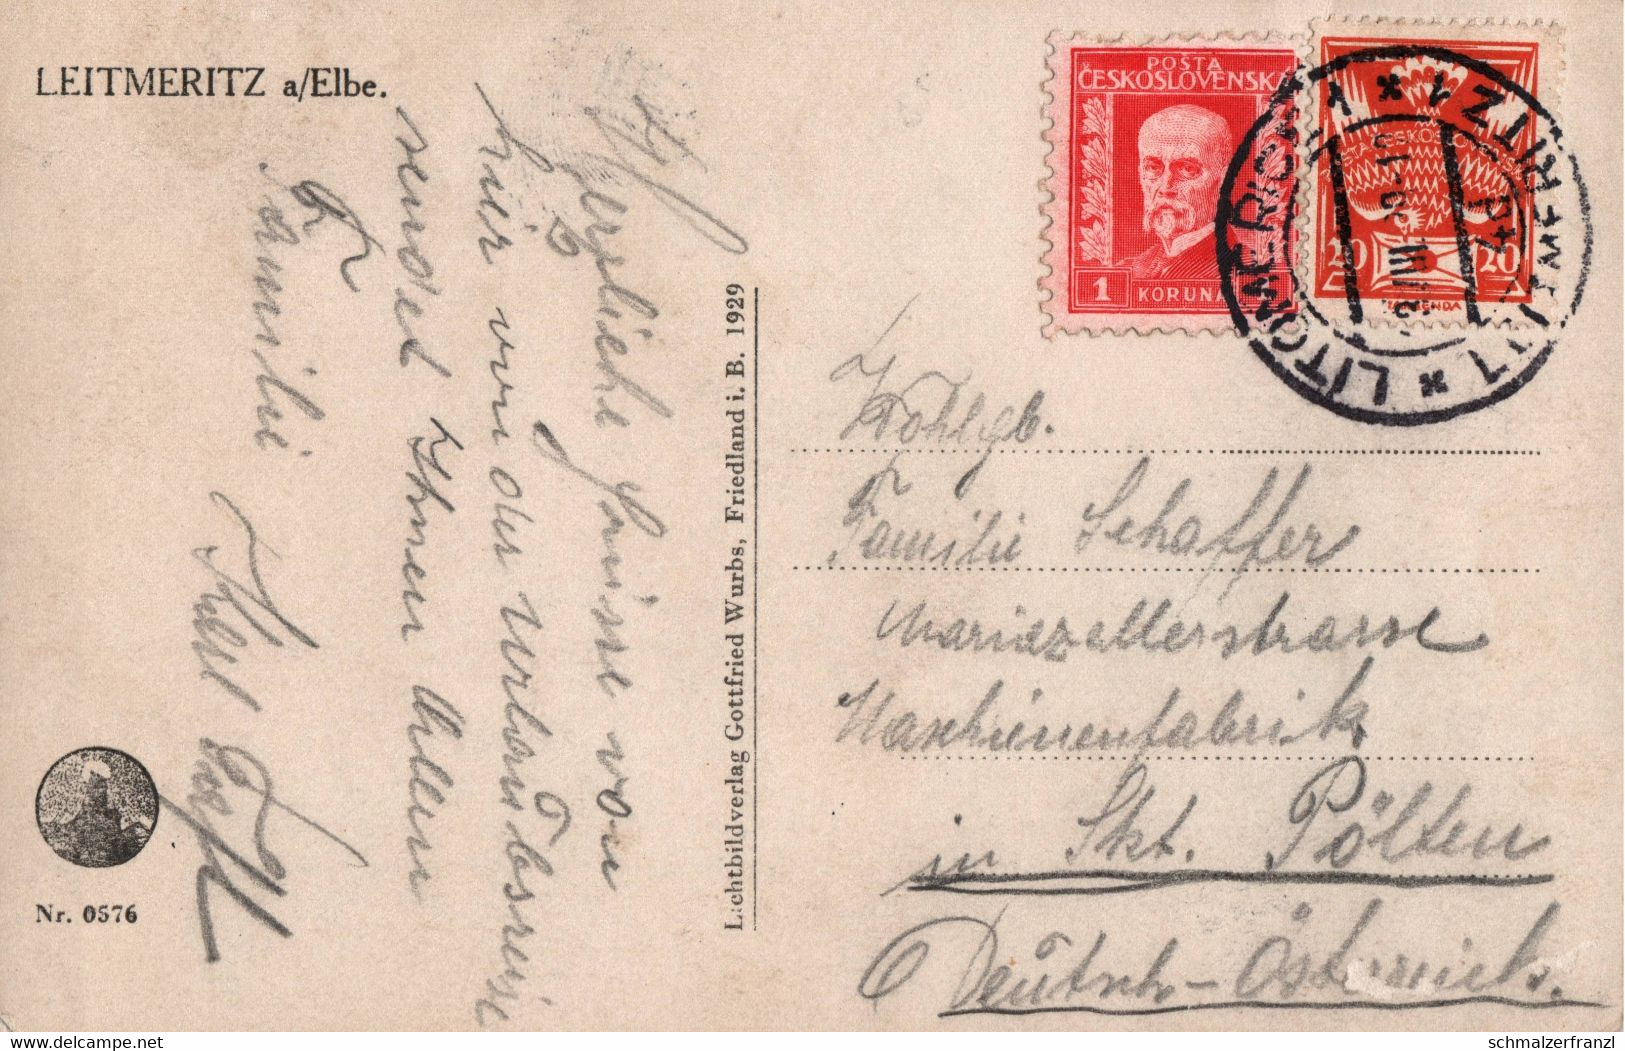 LEITMERITZ a/Elbe.
Herzliche Grüsse von
hier von der Urlaubsreise
sendet Ihnen Allen
Familie
Nr. 0576
Lichtbildverlag Gottfried Wurbs, Friedland i. B. 1929
POSTA
ČESKOSLOVENSKÁ
1 KORUNA
20 20
LITOMĚŘICE 1 * LEITMERITZ 1 *
Wohlgb.
Familie Schaffer
Mariazellerstrasse
Maschinenfabrik
in Skt. Pölten
Deutsch-Österreich.
delcampe.net
schmalzerfranzl